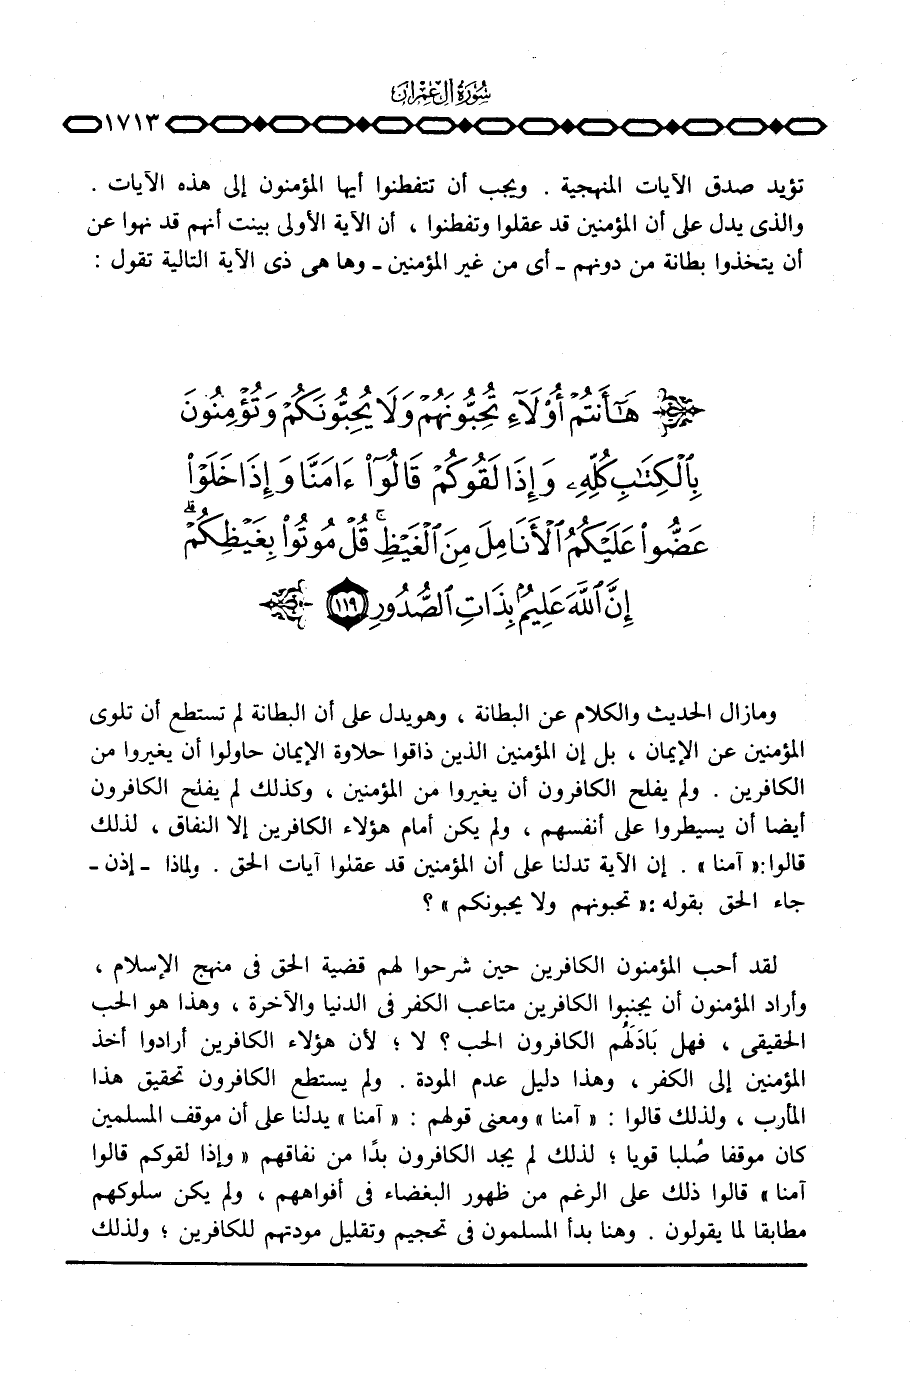 سُورَةُ آلِ عِمْرَانَ
١٧١٣
تؤيد صدق الآيات المنهجية . ويجب أن تتفطنوا أيها المؤمنون إلى هذه الآيات .
والذى يدل على أن المؤمنين قد عقلوا وتفطنوا ، أن الآية الأولى بينت أنهم قد نهوا عن
أن يتخذوا بطانة من دونهم ـ أى من غير المؤمنين ـ وها هى ذى الآية التالية تقول :
هَٰٓأَنتُمْ أُو۟لَآءِ تُحِبُّونَهُمْ وَلَا يُحِبُّونَكُمْ وَتُؤْمِنُونَ
بِٱلْكِتَٰبِ كُلِّهِۦ وَإِذَا لَقُوكُمْ قَالُوٓا۟ ءَامَنَّا وَإِذَا خَلَوْا۟
عَضُّوا۟ عَلَيْكُمُ ٱلْأَنَامِلَ مِنَ ٱلْغَيْظِ ۚ قُلْ مُوتُوا۟ بِغَيْظِكُمْ ۗ
إِنَّ ٱللَّهَ عَلِيمٌۢ بِذَاتِ ٱلصُّدُورِ ١١٩
ومازال الحديث والكلام عن البطانة ، وهويدل على أن البطانة لم تستطع أن تلوى
المؤمنين عن الإيمان ، بل إن المؤمنين الذين ذاقوا حلاوة الإيمان حاولوا أن يغيروا من
الكافرين . ولم يفلح الكافرون أن يغيروا من المؤمنين ، وكذلك لم يفلح الكافرون
أيضا أن يسيطروا على أنفسهم ، ولم يكن أمام هؤلاء الكافرين إلا النفاق ، لذلك
قالوا:« آمنا » . إن الآية تدلنا على أن المؤمنين قد عقلوا آيات الحق . ولماذا ـ إذن ـ
جاء الحق بقوله :« تحبونهم ولا يحبونكم » ؟
لقد أحب المؤمنون الكافرين حين شرحوا لهم قضية الحق فى منهج الإسلام ،
وأراد المؤمنون أن يجنبوا الكافرين متاعب الكفر فى الدنيا والآخرة ، وهذا هو الحب
الحقيقى ، فهل بَادَلَهُم الكافرون الحب ؟ لا ؛ لأن هؤلاء الكافرين أرادوا أخذ
المؤمنين إلى الكفر ، وهذا دليل عدم المودة . ولم يستطع الكافرون تحقيق هذا
المأرب ، ولذلك قالوا : « آمنا » ومعنى قولهم : « آمنا » يدلنا على أن موقف المسلمين
كان موقفا صُلبا قويا ؛ لذلك لم يجد الكافرون بدًا من نفاقهم « وإذا لقوكم قالوا
آمنا » قالوا ذلك على الرغم من ظهور البغضاء فى أفواههم ، ولم يكن سلوكهم
مطابقا لما يقولون . وهنا بدأ المسلمون فى تحجيم وتقليل مودتهم للكافرين ؛ ولذلك